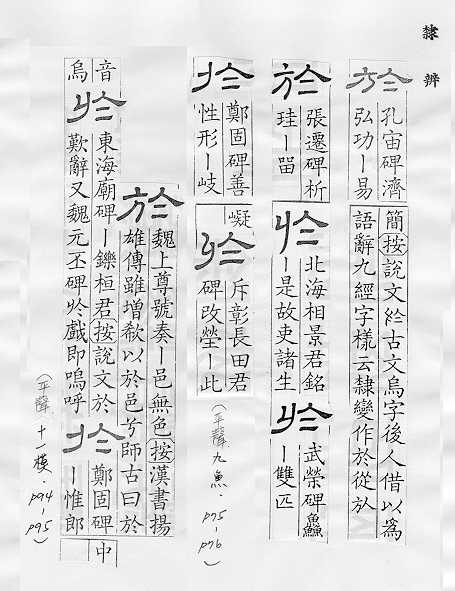 隸辨
於
孔宙碑濟
弘功ー易
簡按說文於古文烏字後人借以爲
語辭九經字樣云隸變作於從㫃
於
張遷碑析
珪ー留
於
北海相景君銘
ー是故吏諸生
於
武榮碑鱻
ー雙匹
於
鄭固碑善
性形ー岐
嶷
於
斥彰長田君
碑改塋ー此
(平聲九魚 p75-p76)
於
魏上尊號奏ー邑無色按漢書揚
雄傳雖增欷以於邑兮師古曰於
音
烏
於
東海廟碑ー鑠桓君按說文於
歎辭又魏元丕碑於戲即嗚呼
於
鄭固碑
ー惟郎
中
(平聲 十一模. p94-p95)